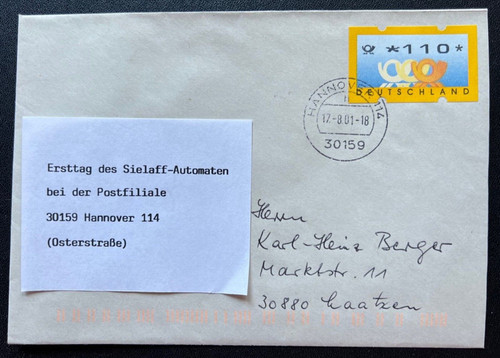 *110*
DEUTSCHLAND
HANNOVER 114
17-8.01-18
30159
Ersttag des Sielaff-Automaten
bei der Postfiliale
30159 Hannover 114
(Osterstraße)
Herrn
Karl-Heinz Berger
Marktstr. 11
30880 Laatzen